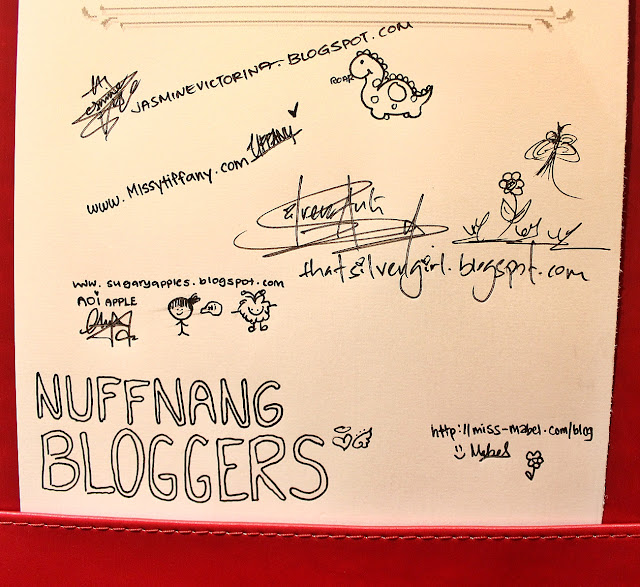 JASMINEVICTORINA.BLOGSPOT.COM
ROAR
www.Missytiffany.com TIFFANY
thatsilvergirl.blogspot.com
www.sugaryapples.blogspot.com
AOI APPLE
Hi
NUFFNANG
BLOGGERS
http://miss-mabel.com/blog
Mabel